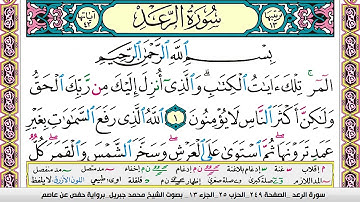 سُورَةُ الرَّعْدِ
بِسْمِ اللَّهِ الرَّحْمَٰنِ الرَّحِيمِ
الٓمٓر ۚ تِلْكَ ءَايَٰتُ الْكِتَٰبِ ۗ وَالَّذِىٓ أُنزِلَ إِلَيْكَ مِن رَّبِّكَ الْحَقُّ
وَلَٰكِنَّ أَكْثَرَ النَّاسِ لَا يُؤْمِنُونَ ١ اللَّهُ الَّذِى رَفَعَ السَّمَٰوَٰتِ بِغَيْرِ
عَمَدٍ تَرَوْنَهَا ۖ ثُمَّ اسْتَوَىٰ عَلَى الْعَرْشِ ۖ وَسَخَّرَ الشَّمْسَ وَالْقَمَرَ ۖ كُلٌّ
سورة الرعد - الصفحة ٢٤٩ - الحزب ٢٥ - الجزء ١٣ - بصوت الشيخ محمد جبريل - برواية حفص عن عاصم